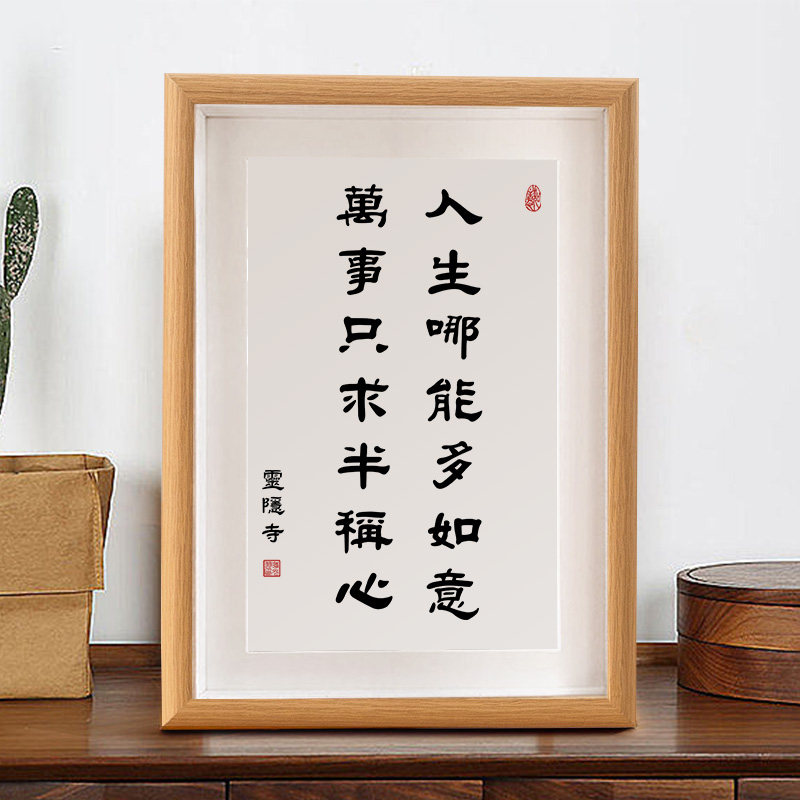 人生哪能多如意
萬事只求半稱心
靈隱寺